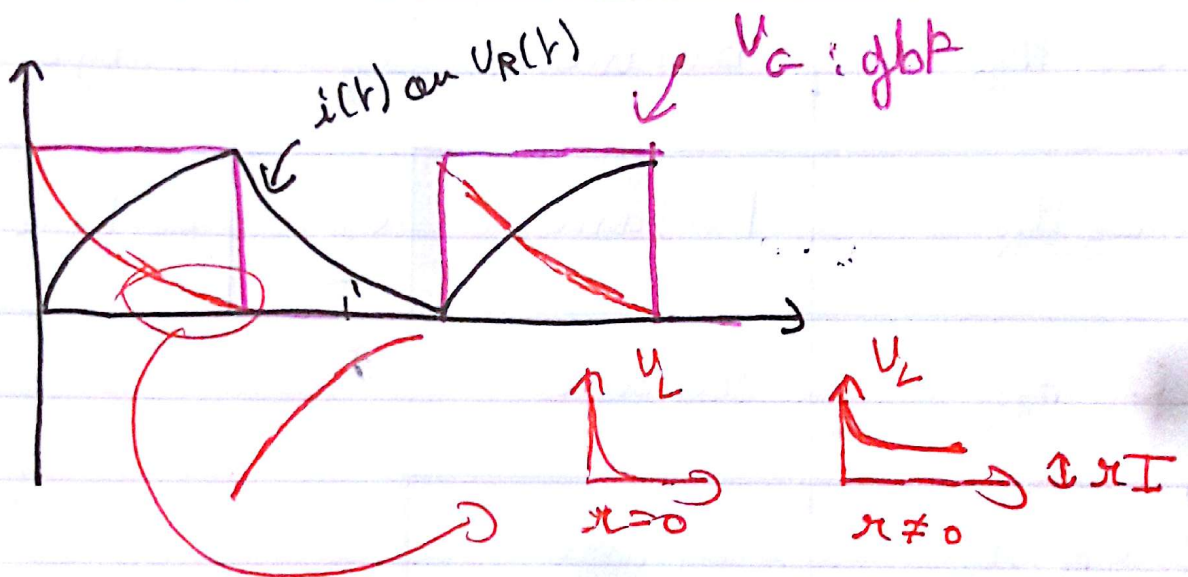 i(t) ou U_R(t)
U_G : gbf
U_L
U_L
r=0
r≠0
↕ rI